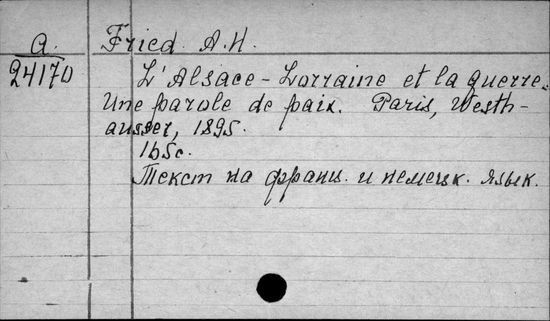 A.
24170
Fried A.H.
L'Alsace-Lorraine et la guerre.
Une parole de paix. Paris, Westh-
ausser, 1895.
165c.
Текст на франц. и немецк. язык.